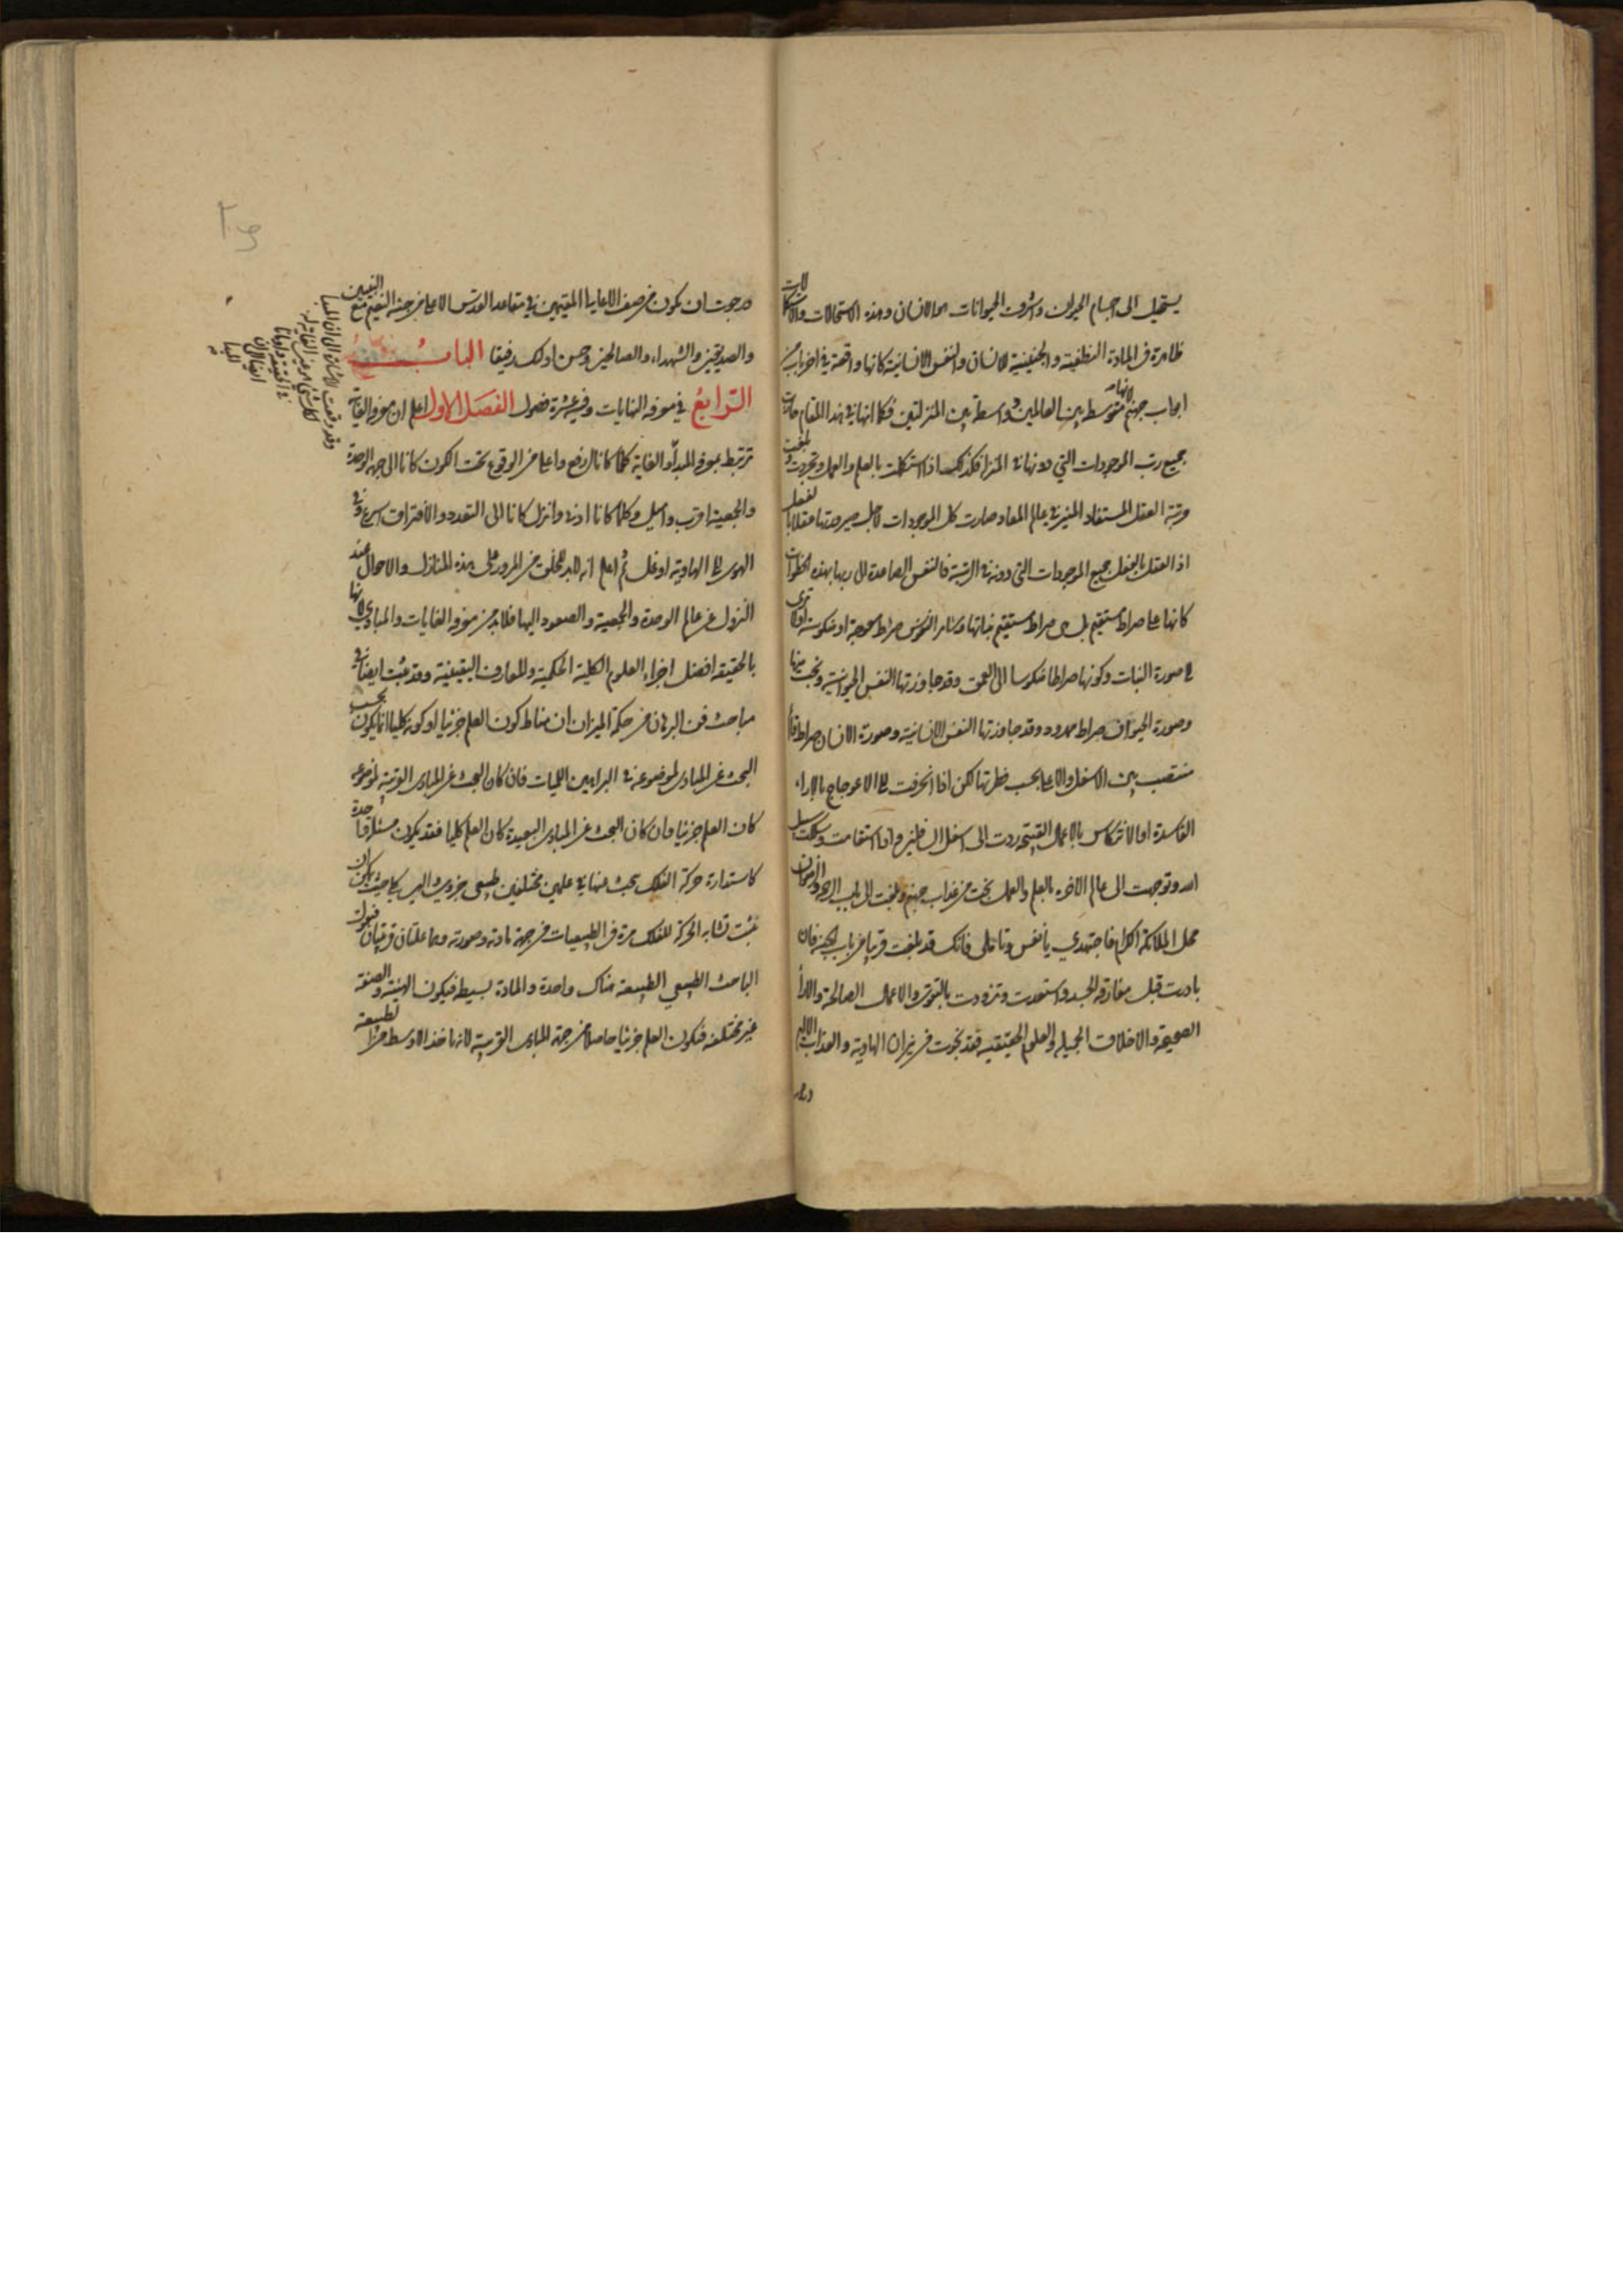 يستحيل الى اجسام الحيوان واشرف الحيوانات هو الانسان وهذه الاستحالات والاستكمالات
ظاهرة فى المادة النطفية والجنينية للانسان والنفس الانسانية كانها واقعة فى اخر باب من
ابواب جهنم لانها متوسط بين العالمين وواسطة بين المنزلتين فكما انها فى هذا المقام حازت
جميع رتب الموجودات التى دونها فى المنزلة فكذلك اذا استكملت بالعلم والعمل وتجردت وبلغت
مرتبة العقل المستفاد المنير فى عالم المعاد صارت كل الموجودات لاجل صيرورتها عقلا بالفعل
اذ العقل بالفعل جميع الموجودات التى دونه فى الرتبة فالنفس الصاعدة الى ربها بهذه الخطوات
كانها على صراط مستقيم بل هى صراط مستقيم بذاتها وسائر النفوس صراط معوجة او منكوسة اولا ترى
الى صورة النبات وكونها صراطا منكوسا الى العمق وقد جاوزتها النفس الحيوانية ونجت منها
وصورة الحيوان صراط ممدود وقد جاوزتها النفس الانسانية وصورة الانسان صراط قائم
منتصب بين الاسفل والاعلى بحسب فطرتها لكن اذا انحرفت الى الاعوجاج بالاراء
الفاسدة او الانتكاس بالاعمال القبيحة ردت الى اسفل السافلين واذا استقامت وسلكت سبيل
الله وتوجهت الى عالم الاخرة بالعلم والعمل نجت من عذاب جهنم وبلغت الى باب الرحمة والرضوان
محل الملائكة الكرام فاجتهدى يا نفس وتاملى فانك قد بلغت قريبا من باب الجنة فان
بادرت قبل مفارقة الجسد واستعددت وتزودت بالتقوى والاعمال الصالحة والاراء
الصحيحة والاخلاق الجميلة والعلوم الحقيقية فقد نجوت من نيران الهاوية والعذاب الاليم
ورجوت ان يكون من صف الاعالى المقيمين فى مقاعد القدس الاعلى من جنة النعيم مع النبيين
والصديقين والشهداء والصالحين وحسن اولئك رفيقا الباب
الرابع فى معرفة النهايات وفيه عشرة فصول الفصل الاول اعلم ان معرفة الغاية
ترتبط بمعرفة المبدأ والغاية كلما كانا ارفع واعلى من الوقوع تحت الكون كانا الى جهة الوحدة
والجمعية اقرب واميل وكلما كانا ادنى وانزل كانا الى التعدد والافتراق اسرع وفى
الهوى الى الهاوية اوغل ثم اعلم انه لابد للخلق من المرور على هذه المنازل والاحوال عند
النزول عن عالم الوحدة والجمعية والصعود اليها فلابد من معرفة الغايات والمبادى لانها
بالحقيقة افضل اجزاء العلوم الكلية الحكمية والمعارف اليقينية وقد ثبت ايضا فى
مباحث فن البرهان من حكمة الميزان ان مناط كون العلم جزئيا او كونه كليا انما يكون بحسب
البحث عن المبادى لموضوعه فى البراهين اللميات فان كان البحث عن المبادى القريبة لموضوعه
كان العلم جزئيا وان كان البحث عن المبادى البعيدة كان العلم كليا فقد يكون مسئلة واحدة
كاستدارة حركة الفلك يبحث عنها فى علمين مختلفين طبيعى جزوى والهى كلى حيث يمكن ان
يثبت تشابه الحركة للفلك مرة فى الطبيعيات من جهة مادته وصورته وهما علتان قريبتان فيقول
الباحث الطبيعى الطبيعة هناك واحدة والمادة بسيطة فيكون الهيئة والصفة
غير مختلفة فيكون العلم جزئيا حاصلا من جهة المبادى القريبة لانها اخذ الاوسط من الطبيعة
وقد وقعت الاشارة الى ان المبدأ